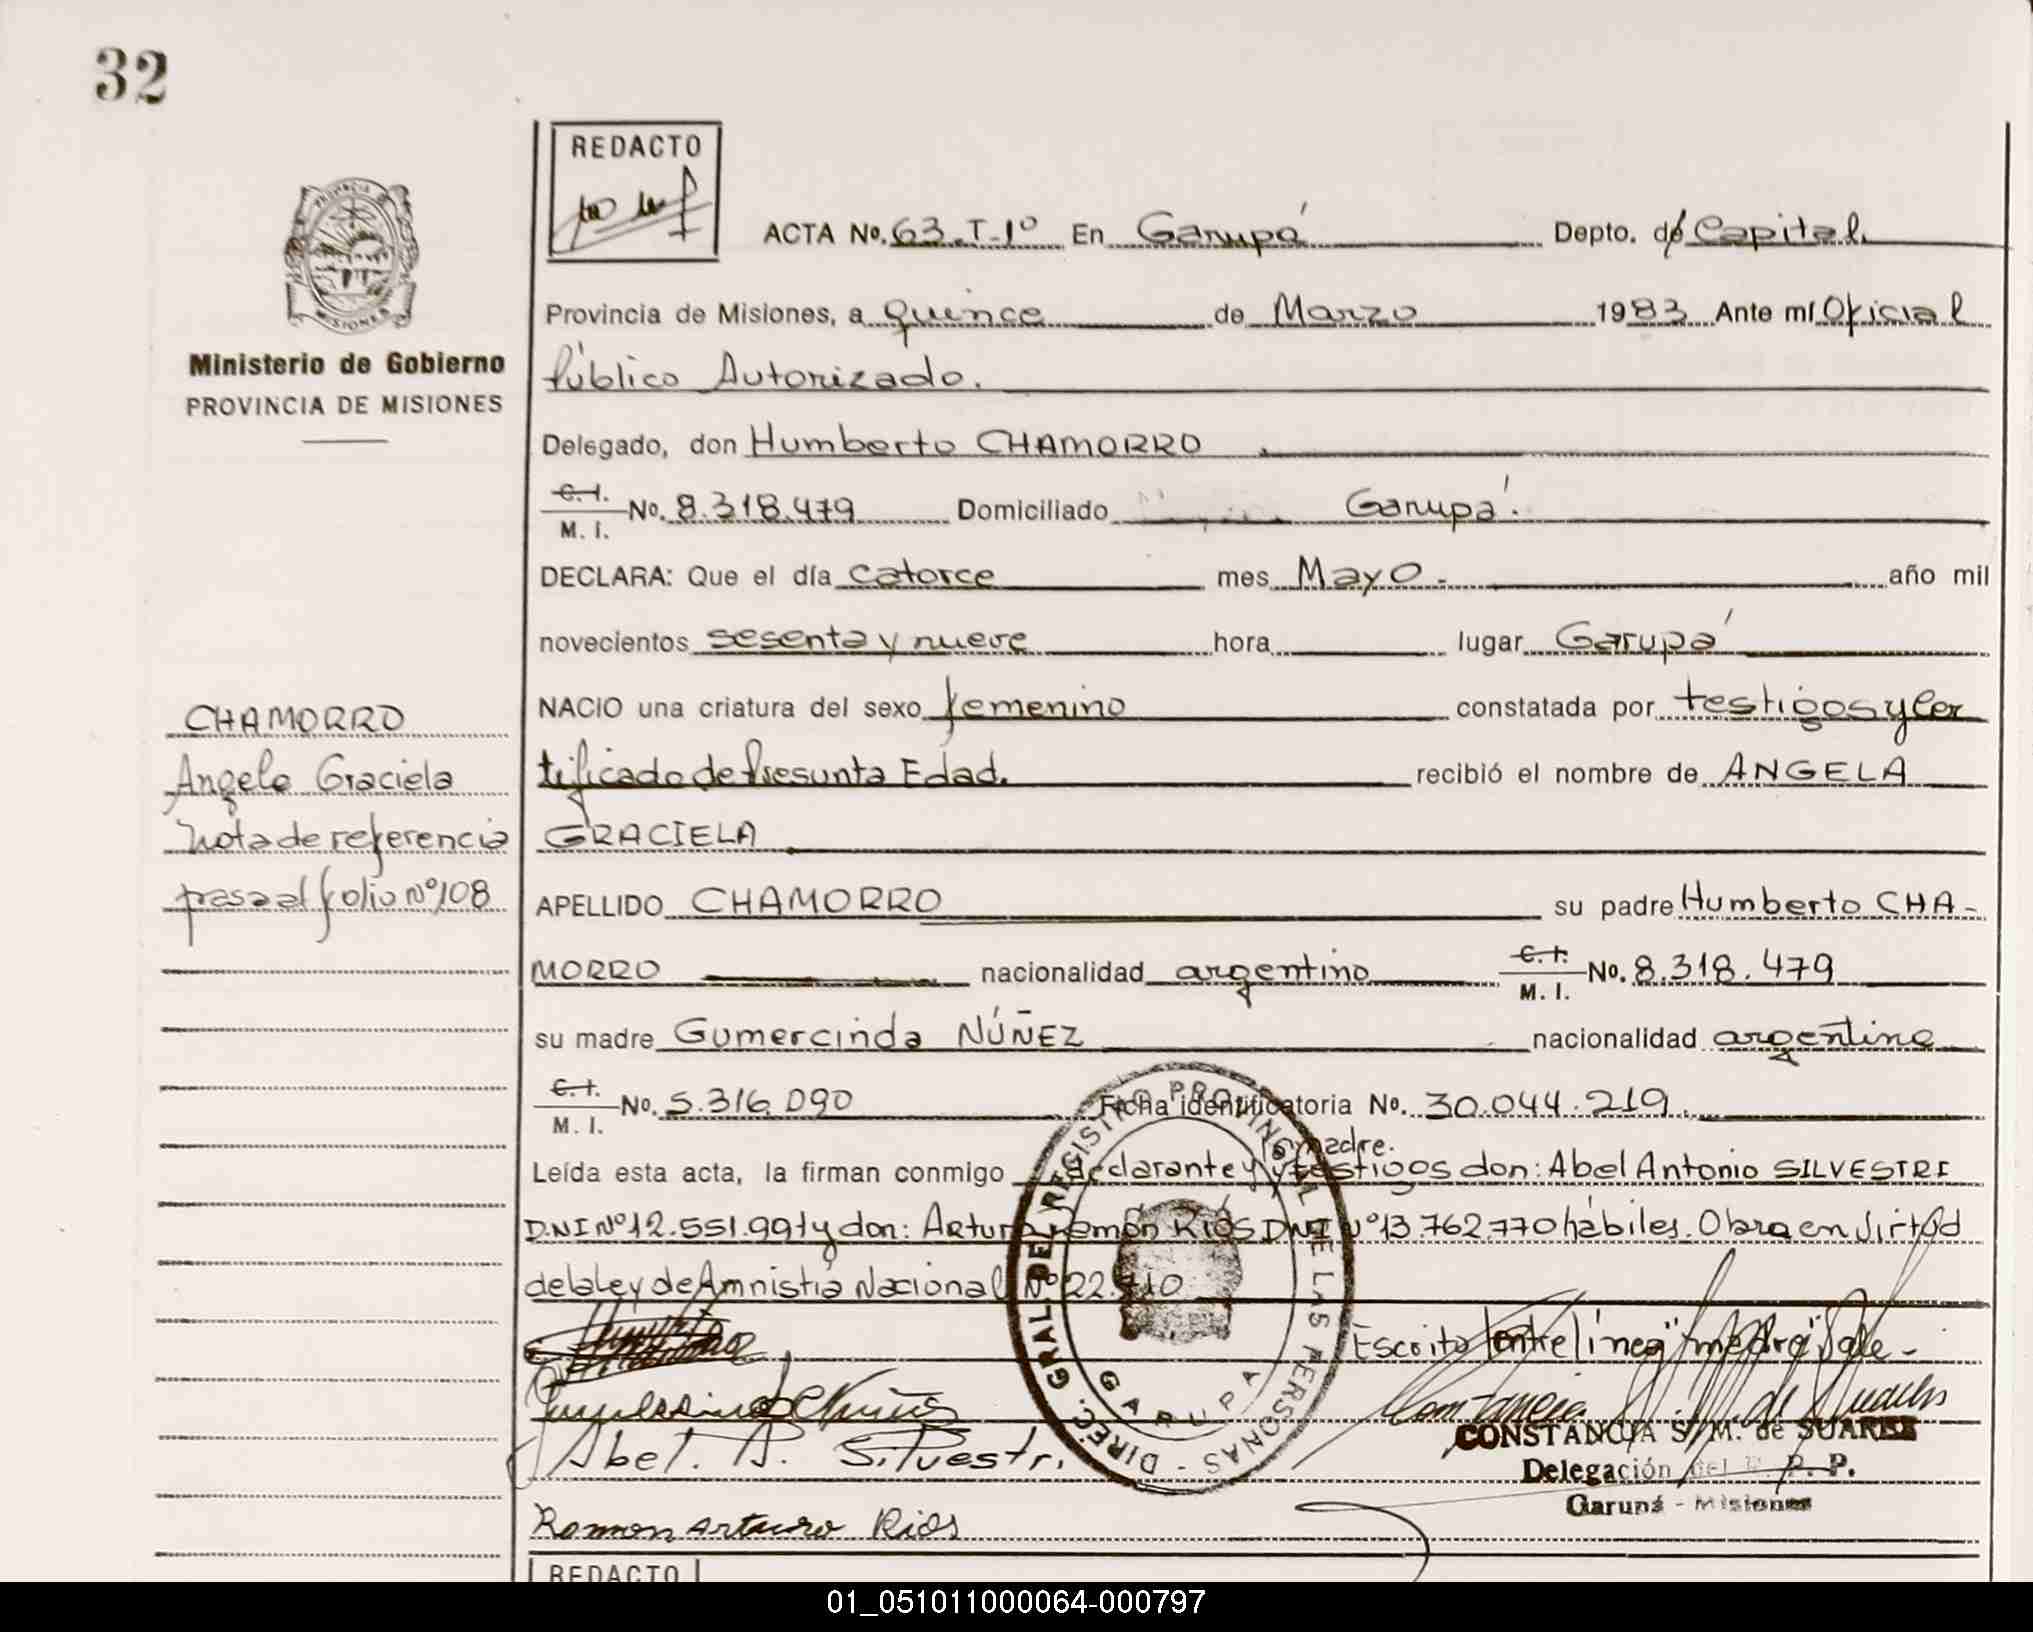 32
REDACTO
ACTA No. 63.T-1º En Garupá Depto. de Capital.
Provincia de Misiones, a quince de Marzo 1983 Ante mí Oficial
Público Autorizado.
Ministerio de Gobierno
PROVINCIA DE MISIONES
Delegado, don Humberto CHAMORRO
C.I.
M. I. No. 8.318.479 Domiciliado Garupá.
DECLARA: Que el día catorce mes Mayo - año mil
novecientos sesenta y nueve hora lugar Garupá
NACIO una criatura del sexo femenino constatada por testigos y cer
tificado de Presunta Edad. recibió el nombre de ANGELA
GRACIELA
CHAMORRO
Angela Graciela
Nota de referencia
pasa al folio Nº108
APELLIDO CHAMORRO su padre Humberto CHA-
MORRO nacionalidad argentino C.I.
M. I. No. 8.318.479
su madre Gumercinda NÚÑEZ nacionalidad argentina
C.I.
M. I. No. 5.316.090 Ficha identificatoria No. 30.044.219
la madre.
Leída esta acta, la firman conmigo declarante y testigos don: Abel Antonio SILVESTRI
D.N.I Nº12.551.991 y don: Arturo Ramón RIOS DNI Nº13.762.770 hábiles. Obra en Virtud
de la Ley de Amnistía Nacional Nº22.410
Escrito entre línea "madre" Vale -
Abel. A. Silvestri.
Ramon Arturo Rios
CONSTANCIA S. M. de SUAREZ
Delegación del R. P. P.
Garupá - Misiones
DIREC. GRAL. DEL REGISTRO PROVINCIAL DE LAS PERSONAS -
GARUPA
REDACTO
01_051011000064-000797